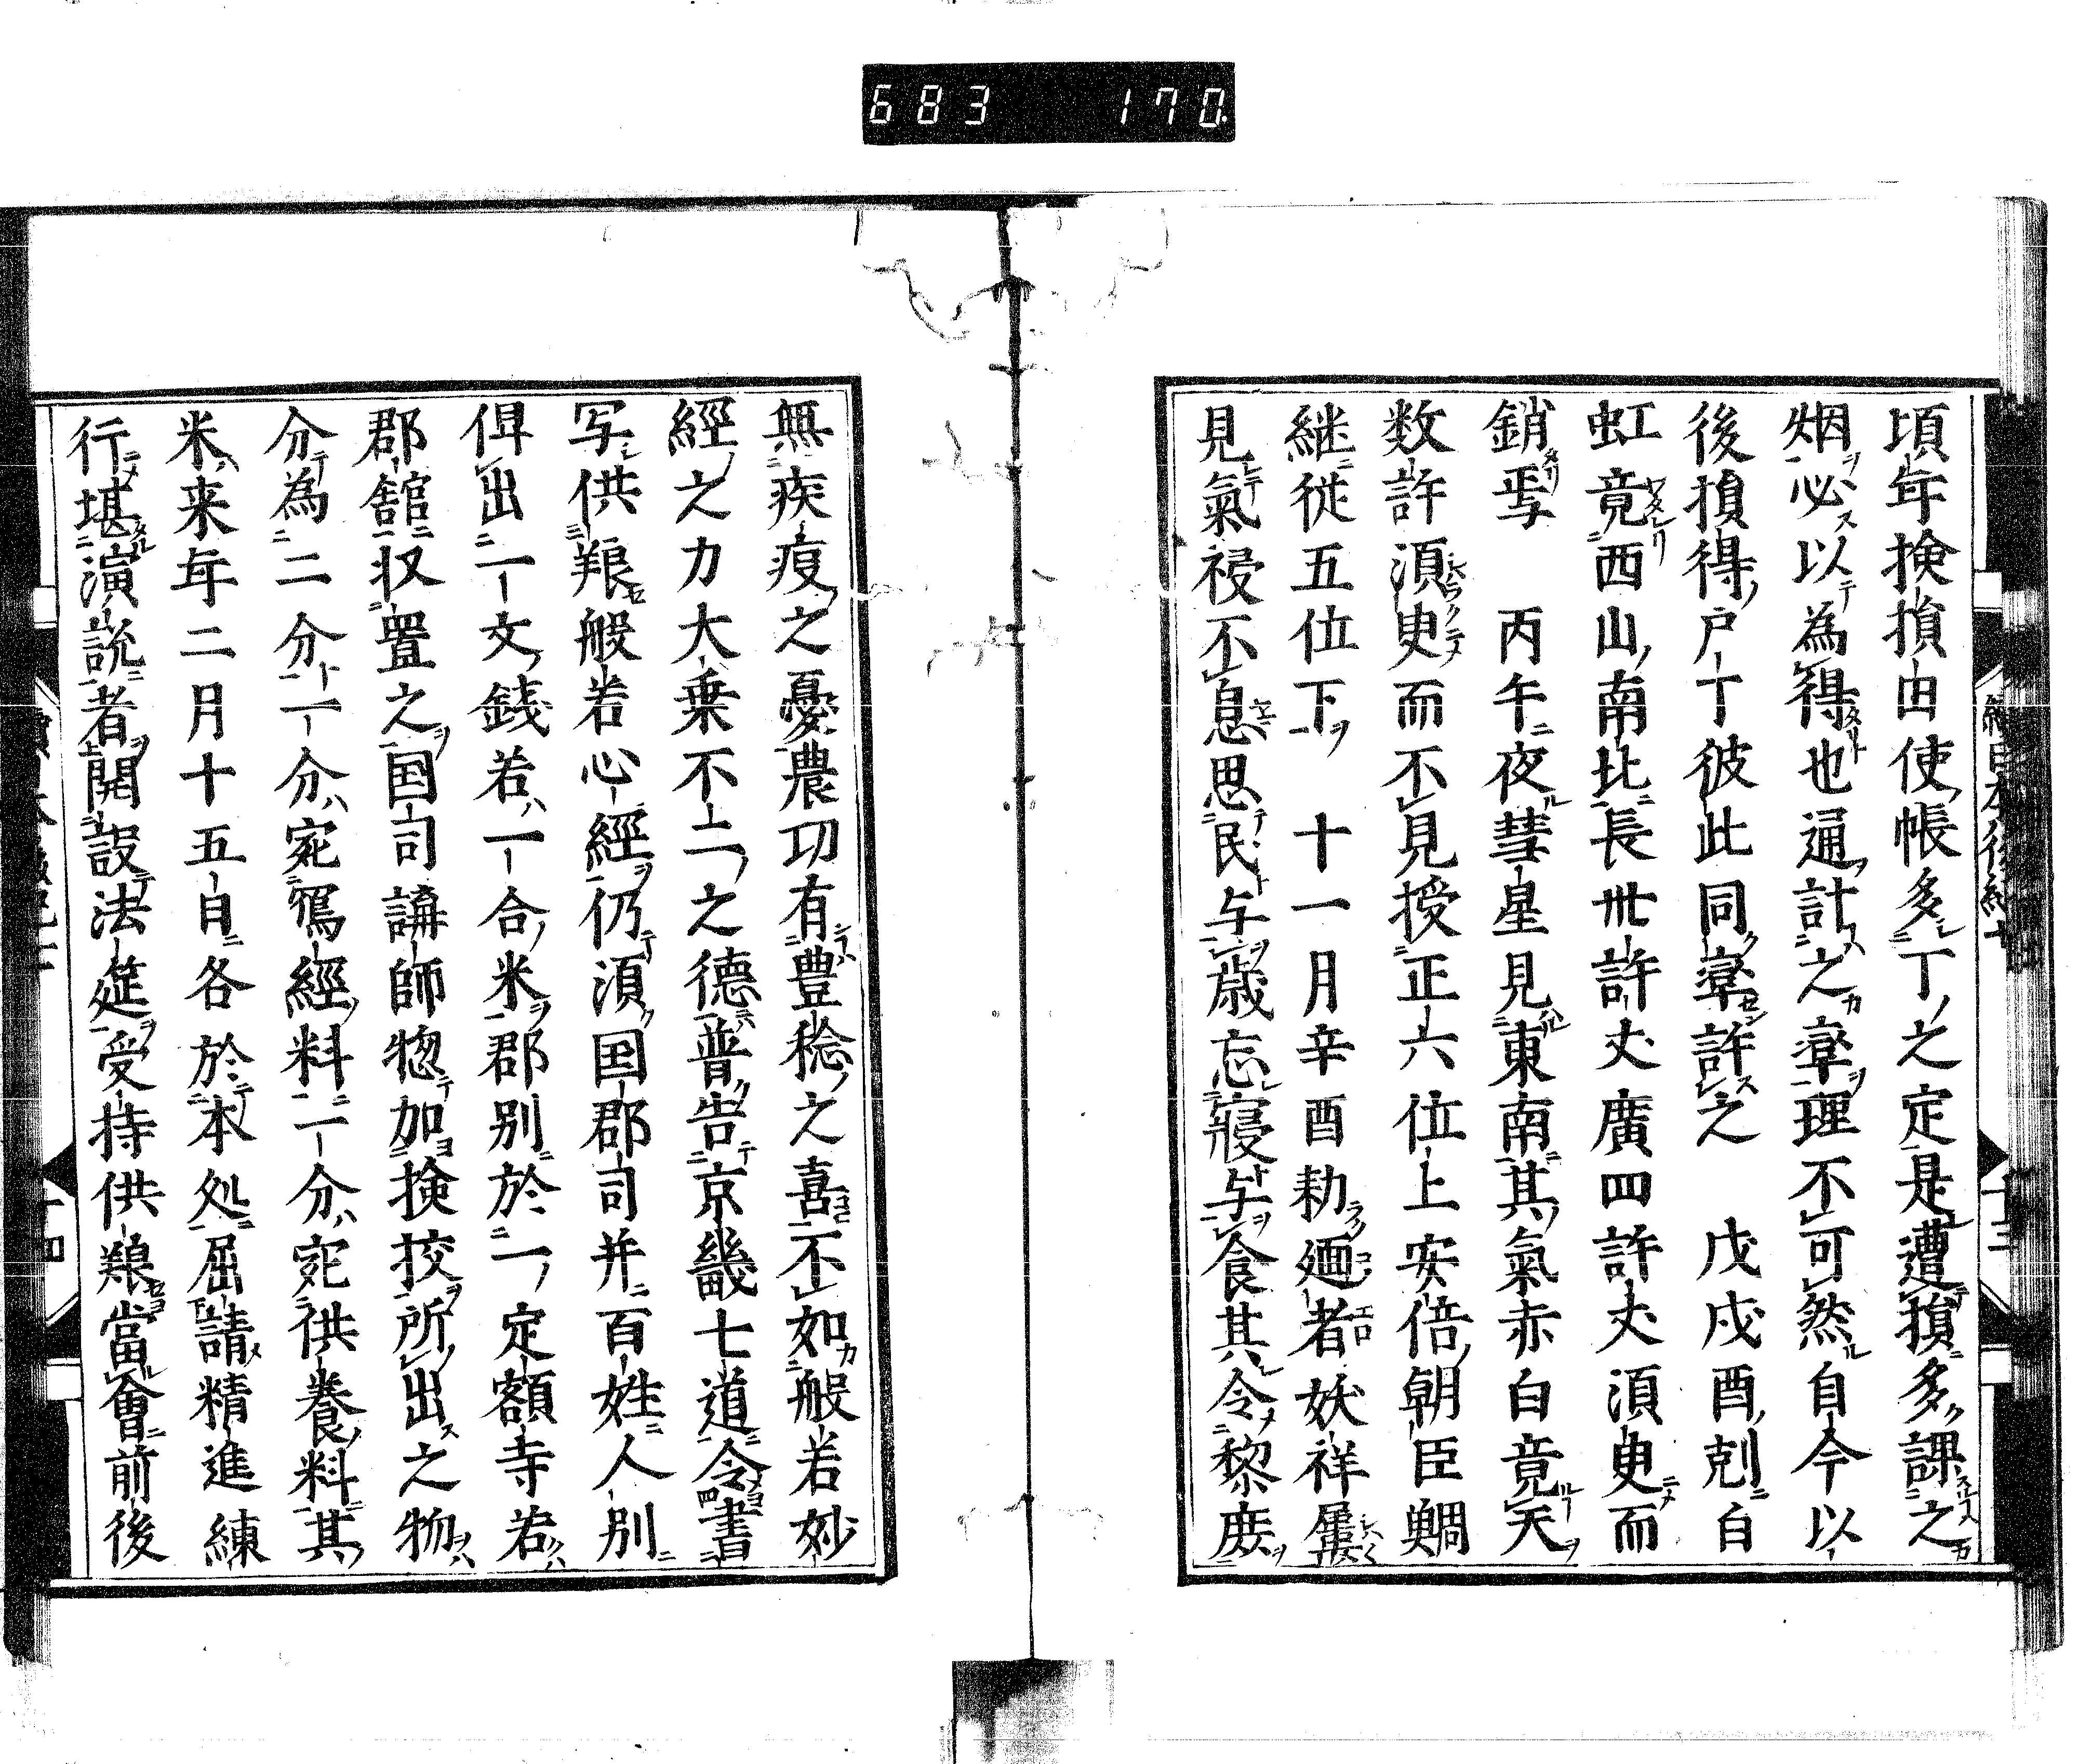 683 170
頃年検損田使帳多丁之定是遭損多課之
烟必以為得也通計之㝡理不可然自今以
後損得戸丁彼此同㝡許之　戊戌酉剋白
虹竟西山南北長卅許丈廣四許丈須臾而
銷焉　丙午夜彗星見東南其氣赤白竟天
数許須臾而不見授正六位上安倍朝臣鯛
継従五位下　十一月辛酉勅廼者妖祥屢
見氣祲不息思民与歳忘寢与食其令黎庶
無疾疫之憂農功有豊稔之喜不如般若妙
經之力大乗不二之德普告京畿七道令書
写供粮般若心經仍須国郡司并百姓人別
俾出一文錢若一合米郡別於一定額寺若
郡舘収置之国司講師惣加検挍所出之物
分為二分一分宛寫經料一分宛供養料其
米来年二月十五日各於本処屈請精進練
行堪演説者開設法筵受持供粮當會前後